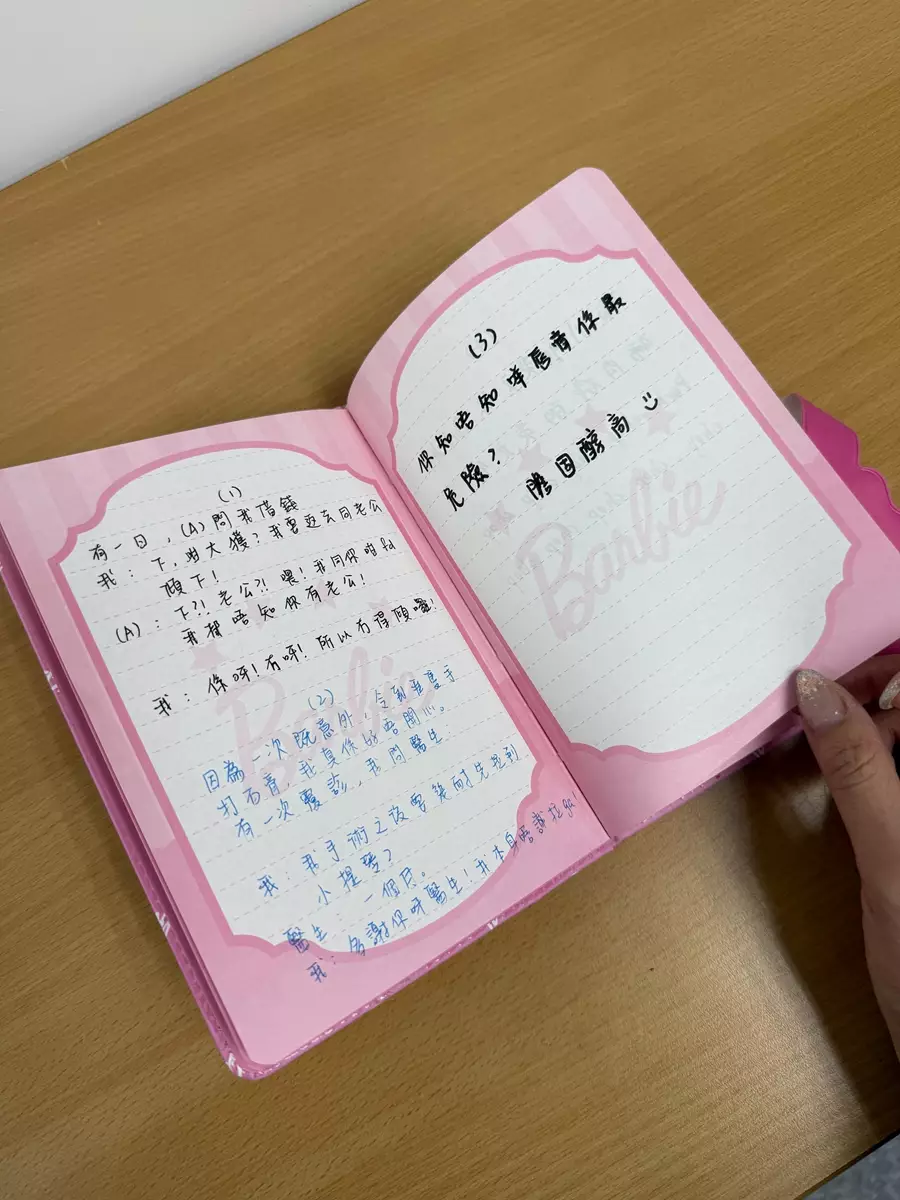 (1)
有一日，(A)問我借錢
我：下，咁大獲？我要返去同老公
傾下！
(A)：下?! 老公?! 喂！我同你咁fd
我都唔知你有老公！
我：係呀！冇呀！所以冇得傾囉！
(2)
因為一次既意外，令到我隻手
打石膏，我真係好唔開心。
有一次覆診，我問醫生
我：我手術之後要幾耐先拉到
小提琴？
醫生：一個月。
我：多謝你呀醫生！我本身唔識拉㗎！
Barbie
(3)
你知唔知咩唇膏係最
危險？
膽固醇高
Barbie